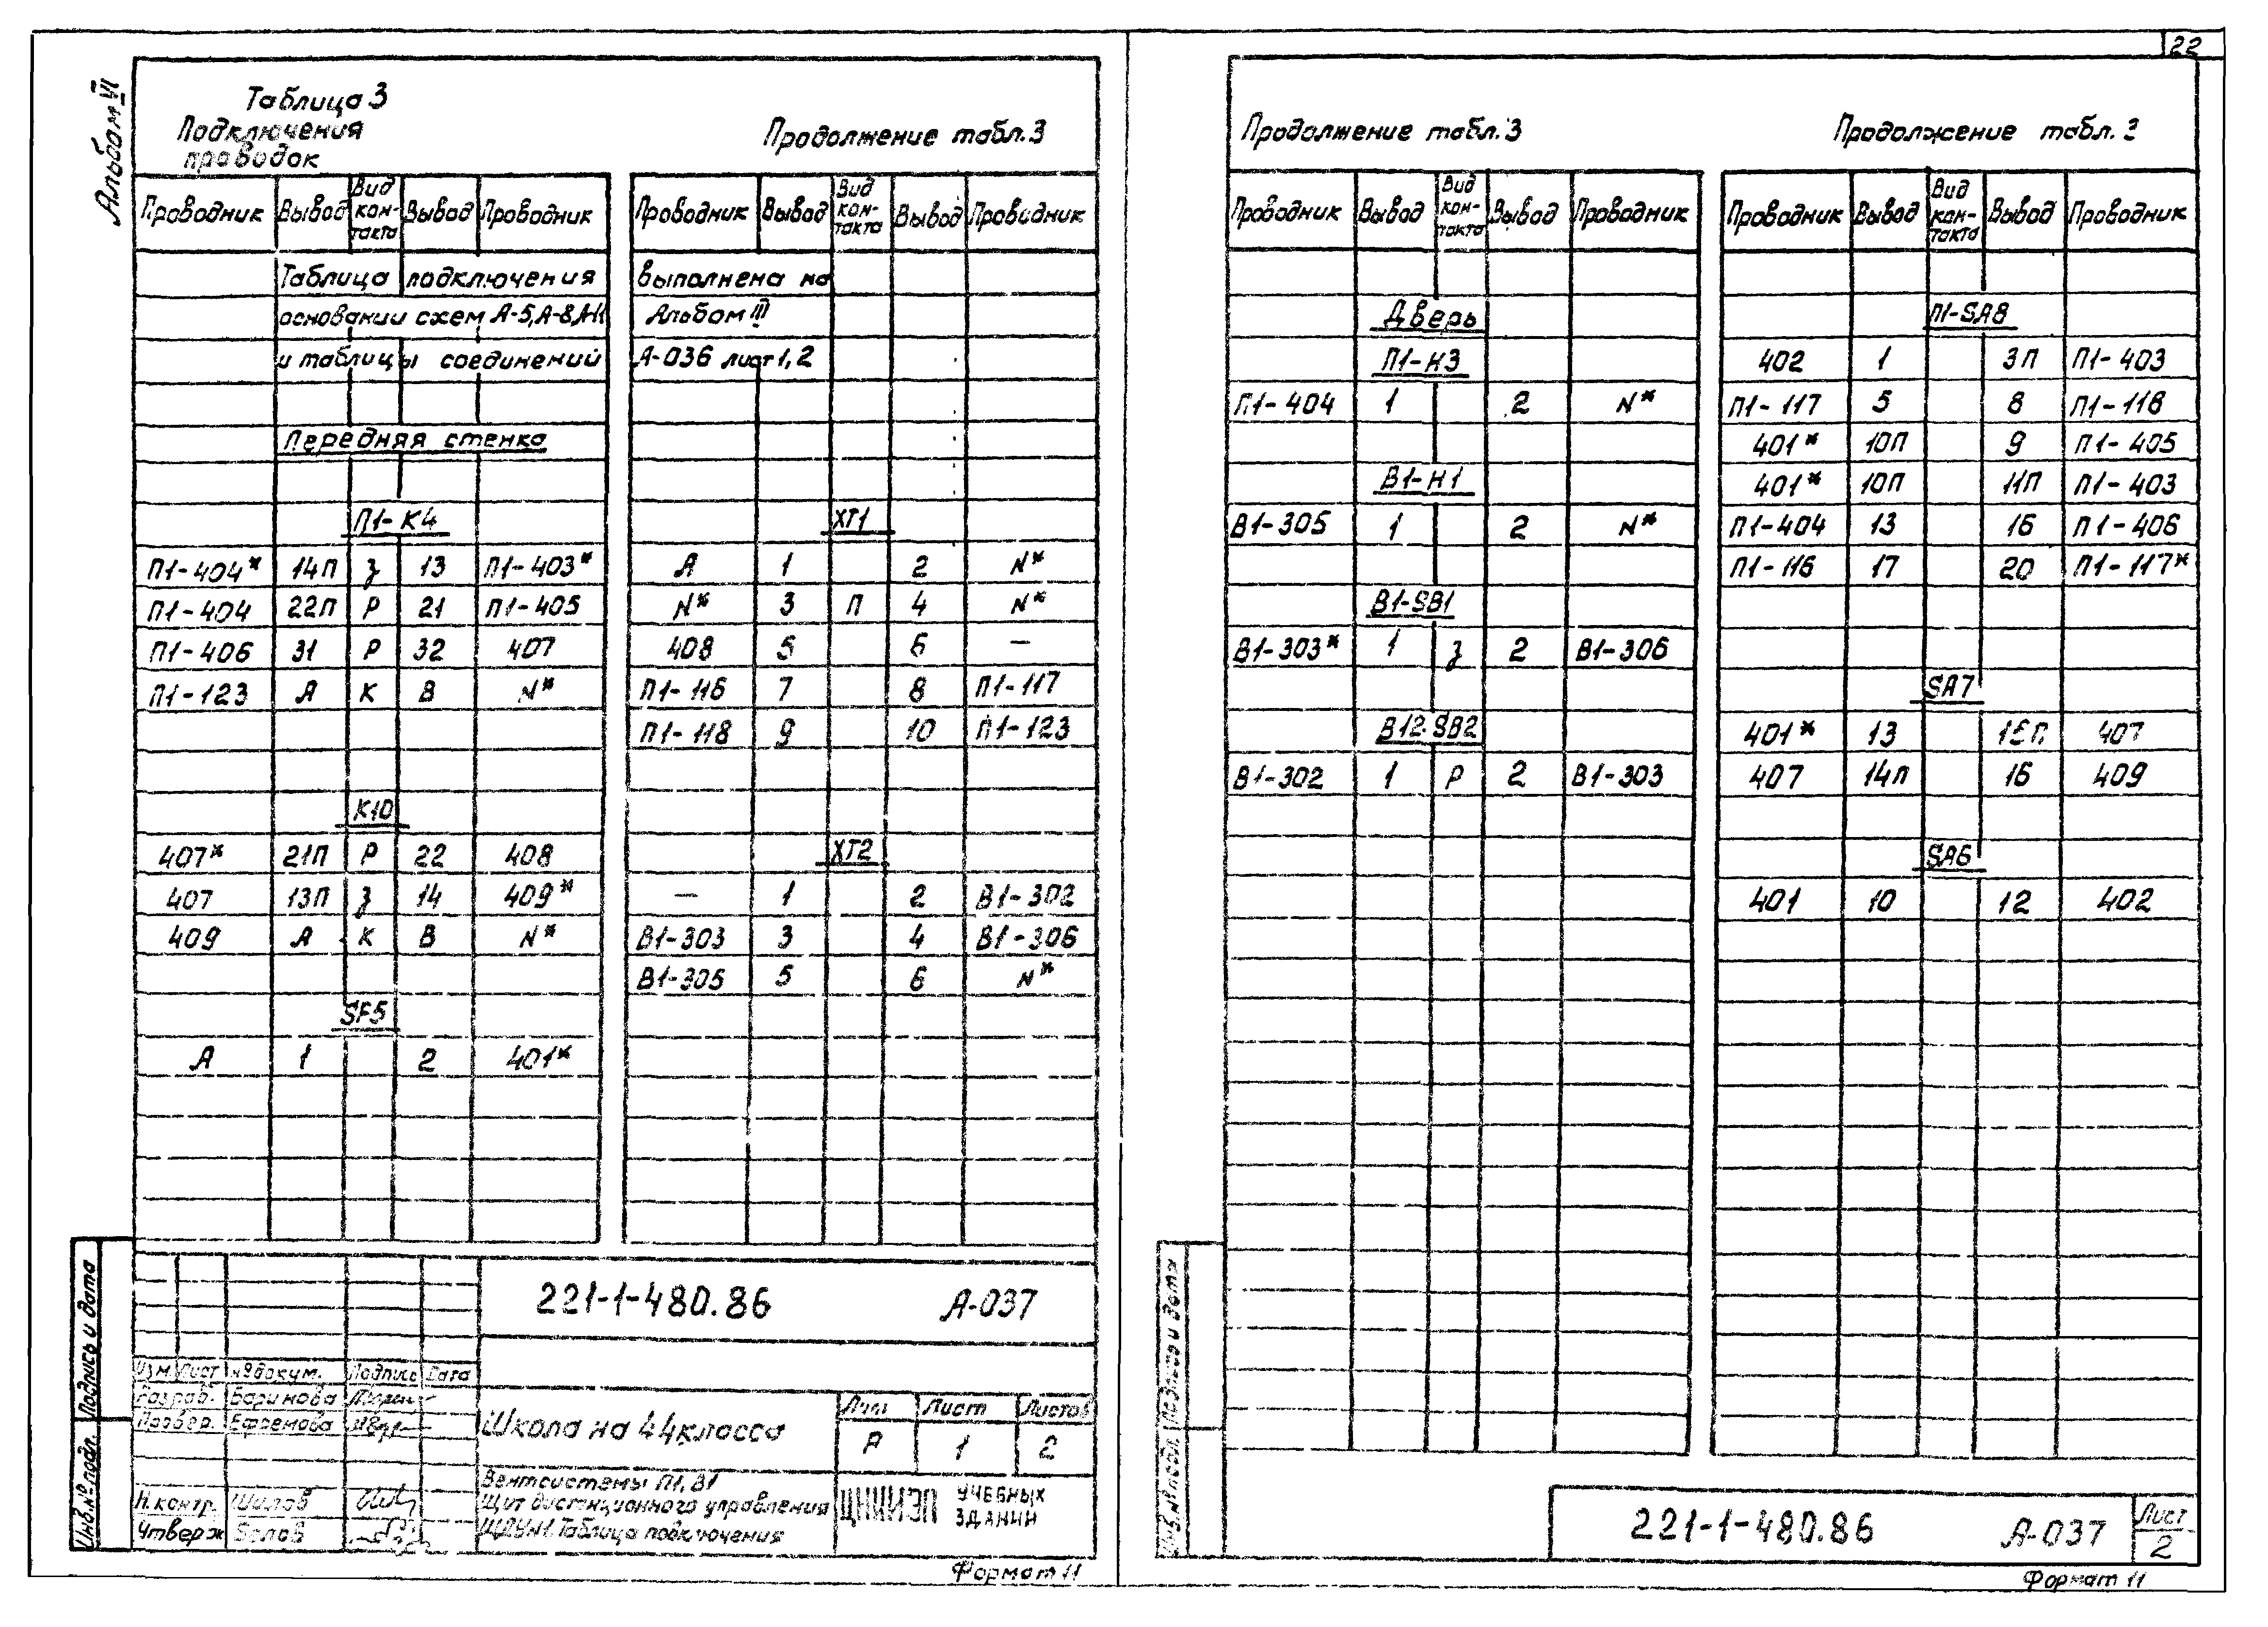 22
Альбом VI
Таблица 3
Подключения
проводок
Продолжение табл. 3
Проводник Вывод Вид контакта Вывод Проводник
Таблица подключения выполнена на
основании схем А-5, А-8, А-11 Альбом III
и таблицы соединений А-036 лист 1, 2
Передняя стенка
П1-К4
П1-404* 14П З 13 П1-403*
П1-404 22П Р 21 П1-405
П1-406 31 Р 32 407
П1-123 А К В N*
К10
407* 21П Р 22 408
407 13П З 14 409*
409 А К В N*
SF5
А 1 2 401*
Проводник Вывод Вид контакта Вывод Проводник
XT1
А 1 2 N*
N* 3 П 4 N*
408 5 6 —
П1-116 7 8 П1-117
П1-118 9 10 П1-123
XT2
— 1 2 В1-302
В1-303 3 4 В1-306
В1-305 5 6 N*
221-1-480.86 А-037
Изм. Лист № докум. Подпись Дата
Разраб. Баринова
Провер. Ефремова
Н. контр. Шилов
Утверж
Школа на 44 класса
Лит Лист Листов
Р 1 2
Вентсистемы П1, В1
Щит дистанционного управления
ЩДУ№1. Таблица подключения
ЦНИИЭП УЧЕБНЫХ
ЗДАНИЙ
Формат 11
Подпись и дата
Инв. № подл.
Продолжение табл. 3
Проводник Вывод Вид контакта Вывод Проводник
Дверь
П1-Н3
П1-404 1 2 N*
В1-Н1
В1-305 1 2 N*
В1-SB1
В1-303* 1 З 2 В1-306
В12-SB2
В1-302 1 Р 2 В1-303
Продолжение табл. 3
Проводник Вывод Вид контакта Вывод Проводник
П1-SA8
402 1 3П П1-403
П1-117 5 8 П1-118
401* 10П 9 П1-405
401* 10П 11П П1-403
П1-404 13 16 П1-406
П1-116 17 20 П1-117*
SA7
401* 13 407
407 14П 16 409
SA6
401 10 12 402
Подпись и дата
Инв. № подл.
221-1-480.86 А-037
Лист
2
Формат 11